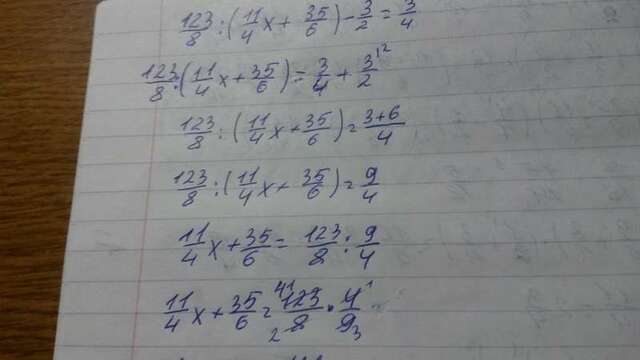 123/8 : (11/4 x + 35/6) - 3/2 = 3/4
123/8 : (11/4 x + 35/6) = 3/4 + 3/2 ^2
123/8 : (11/4 x + 35/6) = 3+6/4
123/8 : (11/4 x + 35/6) = 9/4
11/4 x + 35/6 = 123/8 : 9/4
11/4 x + 35/6 = 41 123/8 2 · 4/9 1 3